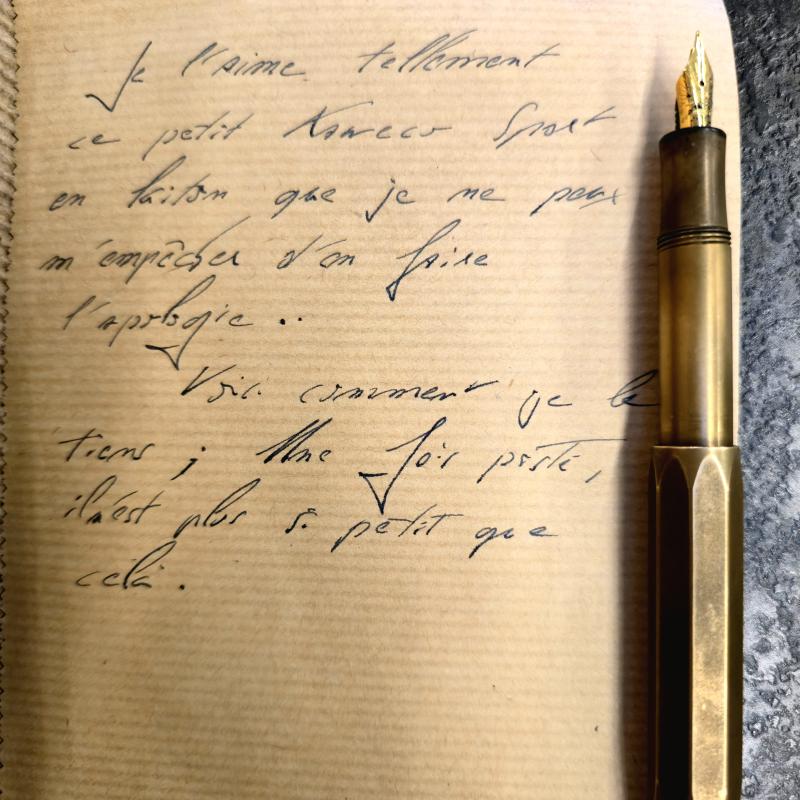 Je l'aime tellement
ce petit Kaweco Sport
en laiton que je ne peux
m'empêcher d'en faire
l'apologie..
Voici comment je le
tiens ; Une fois posté,
il n'est plus si petit que
célà.